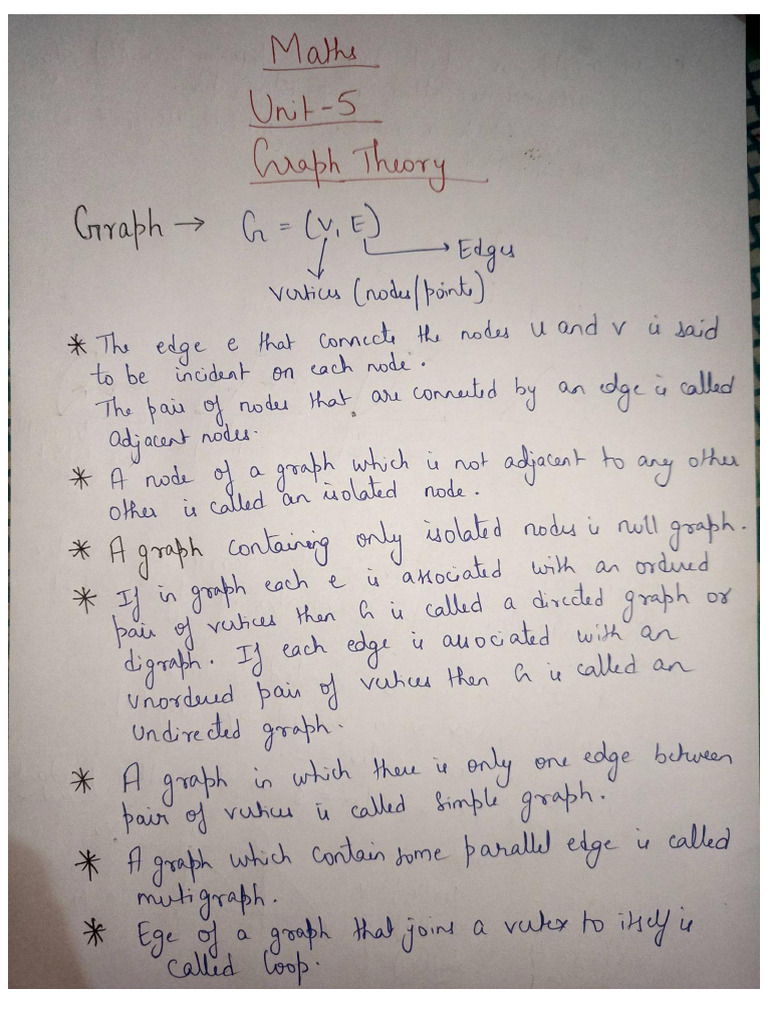 Maths
Unit-5
Graph Theory
Graph → G = (V, E)
Edges
Vertices (nodes/points)
* The edge e that connects the nodes u and v is said
to be incident on each node.
The pair of nodes that are connected by an edge is called
adjacent nodes.
* A node of a graph which is not adjacent to any other
other is called an isolated node.
* A graph containing only isolated nodes is null graph.
* If in graph each e is associated with an ordered
pair of vertices then G is called a directed graph or
digraph. If each edge is associated with an
unordered pair of vertices then G is called an
undirected graph.
* A graph in which there is only one edge between
pair of vertices is called simple graph.
* A graph which contain some parallel edge is called
mutigraph.
* Ege of a graph that joins a vertex to itself is
called loop.